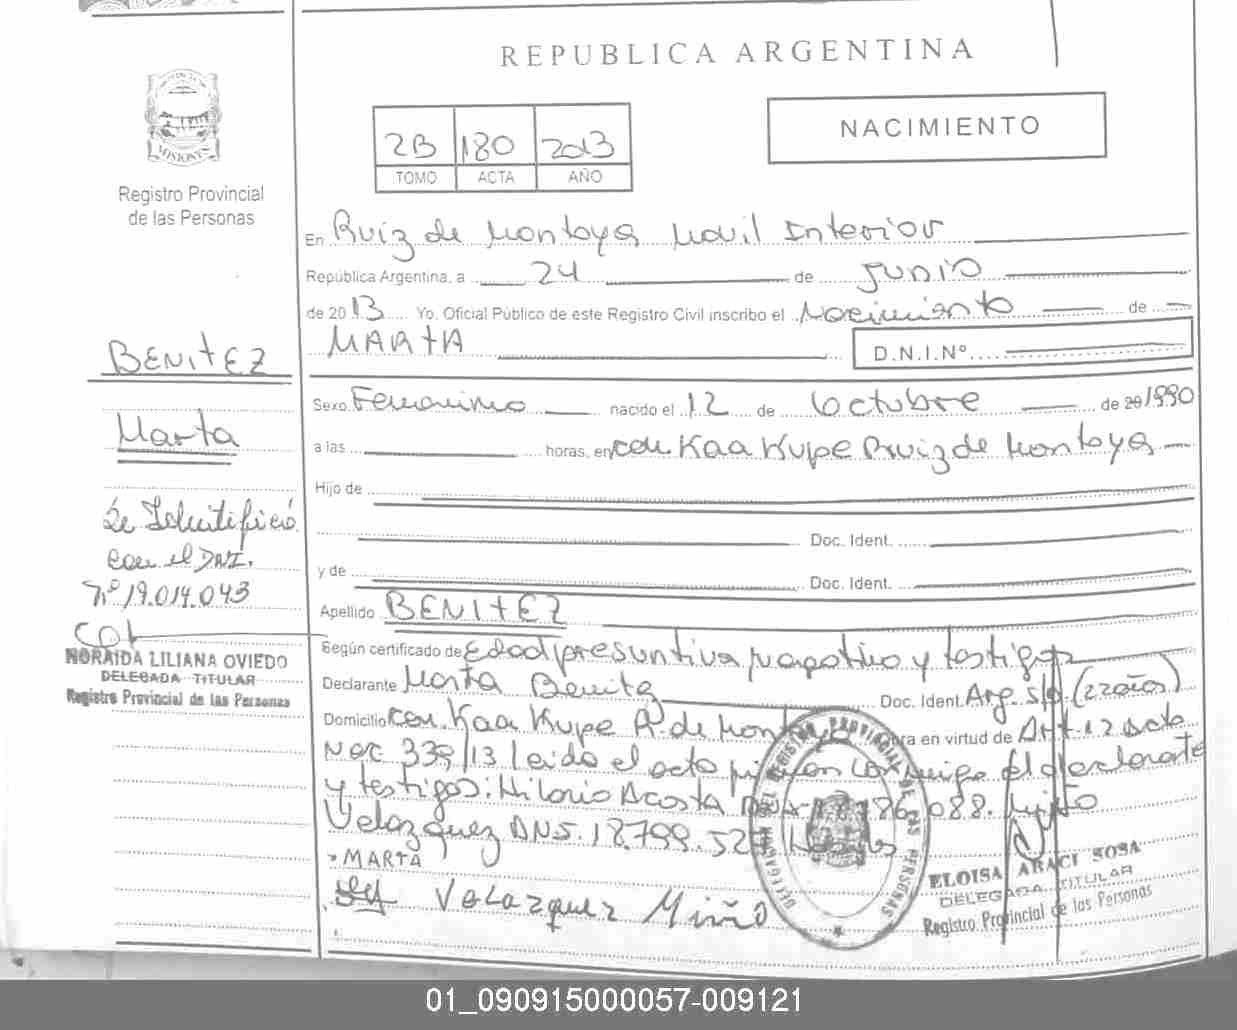 REPUBLICA ARGENTINA
NACIMIENTO
MISIONES
Registro Provincial
de las Personas
2B 180 2013
TOMO ACTA AÑO
En Ruiz de Montoya Movil Interior
República Argentina, a 24 de Junio
de 2013 Yo, Oficial Público de este Registro Civil inscribo el Nacimiento de
MARTA D.N.I.Nº
Sexo Femenino nacido el 12 de Octubre de 20 1990
a las horas, en Com. Kaa Kupe Ruiz de Montoya
Hijo de
Doc. Ident.
y de Doc. Ident.
Apellido BENITEZ
Según certificado de Edad presuntiva y testigos
Declarante Marta Benitez Doc. Ident. Arg. s/d (22 años)
Domicilio Com. Kaa Kupe R. de Montoya en virtud de Art. 12 Dcto
Nac 339/13 Leido el acta conmigo el declarante
y testigos: Hilario Acosta 088. Miño
Velazquez DNI. 18.799.527
MARTA
Velazquez Miño
ELOISA ARACI SOSA
DELEGADA TITULAR
Registro Provincial de las Personas
BENITEZ
Marta
Se Identificó
con el DNI.
Nº 19.014.043
NORAIDA LILIANA OVIEDO
DELEGADA TITULAR
Registro Provincial de las Personas
REGISTRO PROVINCIAL DE LAS PERSONAS
01_090915000057-009121